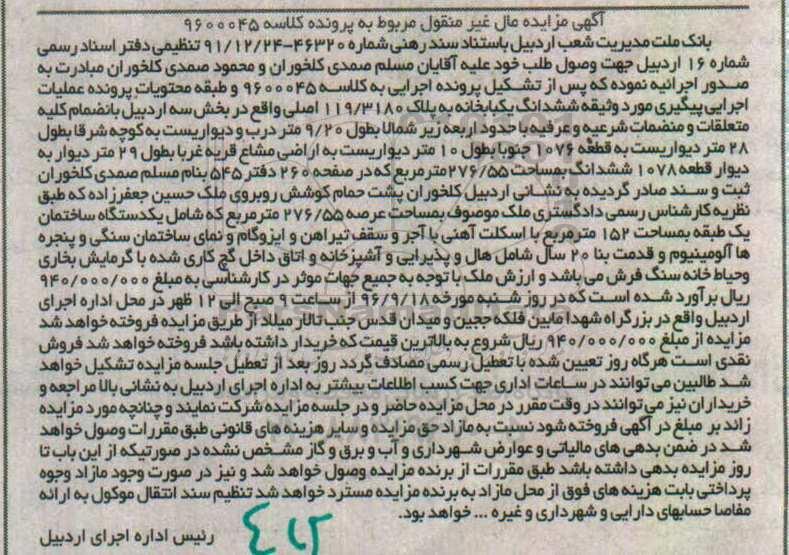 آگهی مزایده مال غیر منقول مربوط به پرونده کلاسه ۹۶۰۰۰۴۵
بانک ملت مدیریت شعب اردبیل باستناد سند رهنی شماره ۴۶۳۲۰-۹۱/۱۲/۲۴ تنظیمی دفتر اسناد رسمی
شماره ۱۶ اردبیل جهت وصول طلب خود علیه آقایان مسلم صمدی کلخوران و محمود صمدی کلخوران مبادرت به
صدور اجرائیه نموده که پس از تشکیل پرونده اجرایی به کلاسه ۹۶۰۰۰۴۵ و طبقه محتویات پرونده عملیات
اجرایی پیگیری مورد وثیقه ششدانگ یکبابخانه به پلاک ۱۱۹/۳۱۸۰ اصلی واقع در بخش سه اردبیل بانضمام کلیه
متعلقات و منضمات شرعیه و عرفیه با حدود اربعه زیر شمالا بطول ۹/۲۰ متر درب و دیواریست به کوچه شرقا بطول
۲۸ متر دیواریست به قطعه ۱۰۷۶ جنوبا بطول ۱۰ متر دیواریست به اراضی مشاع قریه غربا بطول ۲۹ متر دیوار به
دیوار قطعه ۱۰۷۸ ششدانگ بمساحت ۲۷۶/۵۵ متر مربع که در صفحه ۲۶۰ دفتر ۵۴۵ بنام مسلم صمدی کلخوران
ثبت و سند صادر گردیده به نشانی اردبیل کلخوران پشت حمام کوشش روبروی ملک حسین جعفرزاده که طبق
نظریه کارشناس رسمی دادگستری ملک موصوف بمساحت عرصه ۲۷۶/۵۵ متر مربع که شامل یکدستگاه ساختمان
یک طبقه بمساحت ۱۵۲ متر مربع با اسکلت آهنی با آجر و سقف تیرآهن و ایزوگام و نمای ساختمان سنگی و پنجره
ها آلومینیوم و قدمت بنا ۲۰ سال شامل هال و پذیرایی و آشپزخانه و اتاق داخل گچ کاری شده با گرمایش بخاری
وحیاط خانه سنگ فرش می باشد و ارزش ملک با توجه به جمیع جهات موثر در کارشناسی به مبلغ ۹۴۰/۰۰۰/۰۰۰
ریال برآورد شده است که در روز شنبه مورخه ۹۶/۹/۱۸ از ساعت ۹ صبح الی ۱۲ ظهر در محل اداره اجرای
اردبیل واقع در بزرگراه شهدا مابین فلکه ججین و میدان قدس جنب تالار میلاد از طریق مزایده فروخته خواهد شد
مزایده از مبلغ ۹۴۰/۰۰۰/۰۰۰ ریال شروع به بالاترین قیمت که خریدار داشته باشد فروخته خواهد شد فروش
نقدی است هرگاه روز تعیین شده با تعطیل رسمی مصادف گردد روز بعد از تعطیل جلسه مزایده تشکیل خواهد
شد طالبین می توانند در ساعات اداری جهت کسب اطلاعات بیشتر به اداره اجرای اردبیل به نشانی بالا مراجعه و
خریداران نیز می توانند در وقت مقرر در محل مزایده حاضر و در جلسه مزایده شرکت نمایند و چنانچه مورد مزایده
زائد بر مبلغ در آگهی فروخته شود نسبت به مازاد حق مزایده و سایر هزینه های قانونی طبق مقررات وصول خواهد
شد در ضمن بدهی های مالیاتی و عوارض شهرداری و آب و برق و گاز مشخص نشده در صورتیکه از این باب تا
روز مزایده بدهی داشته باشد طبق مقررات از برنده مزایده وصول خواهد شد و نیز در صورت وجود مازاد وجوه
پرداختی بابت هزینه های فوق از محل مازاد به برنده مزایده مسترد خواهد شد تنظیم سند انتقال موکول به ارائه
مفاصا حسابهای دارایی و شهرداری و غیره ... خواهد بود.
رئیس اداره اجرای اردبیل